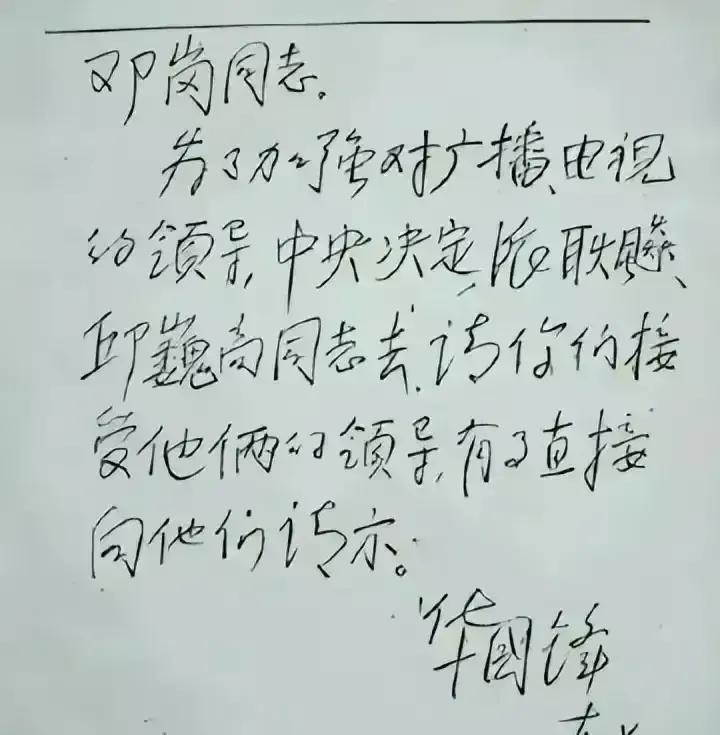 邓岗同志.
为了加强对广播、电视
的領导,中央决定,派耿飈、
邱巍高同志去,请你们接
受他俩的領导,有事直接
向他们请示。
华國锋